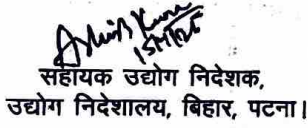 सहायक उद्योग निदेशक,
उद्योग निदेशालय, बिहार, पटना।